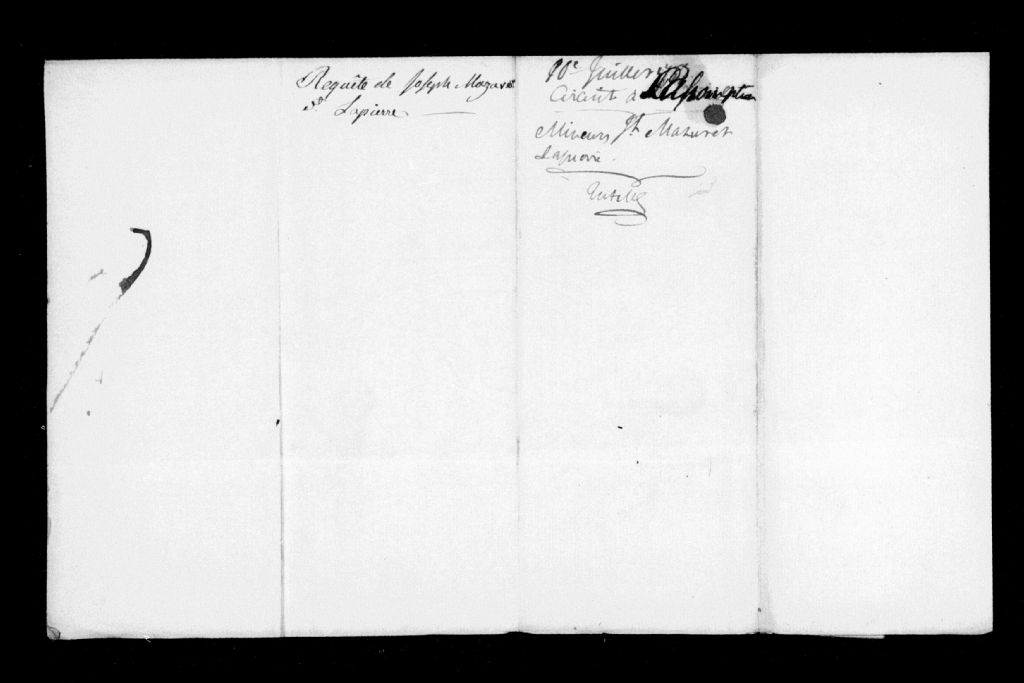 Requête de Joseph Mazuret
dt Lapierre
Juillet
Circuit à L'Assomption
Mineurs Jh Mazuret
Lapierre
Tutelle